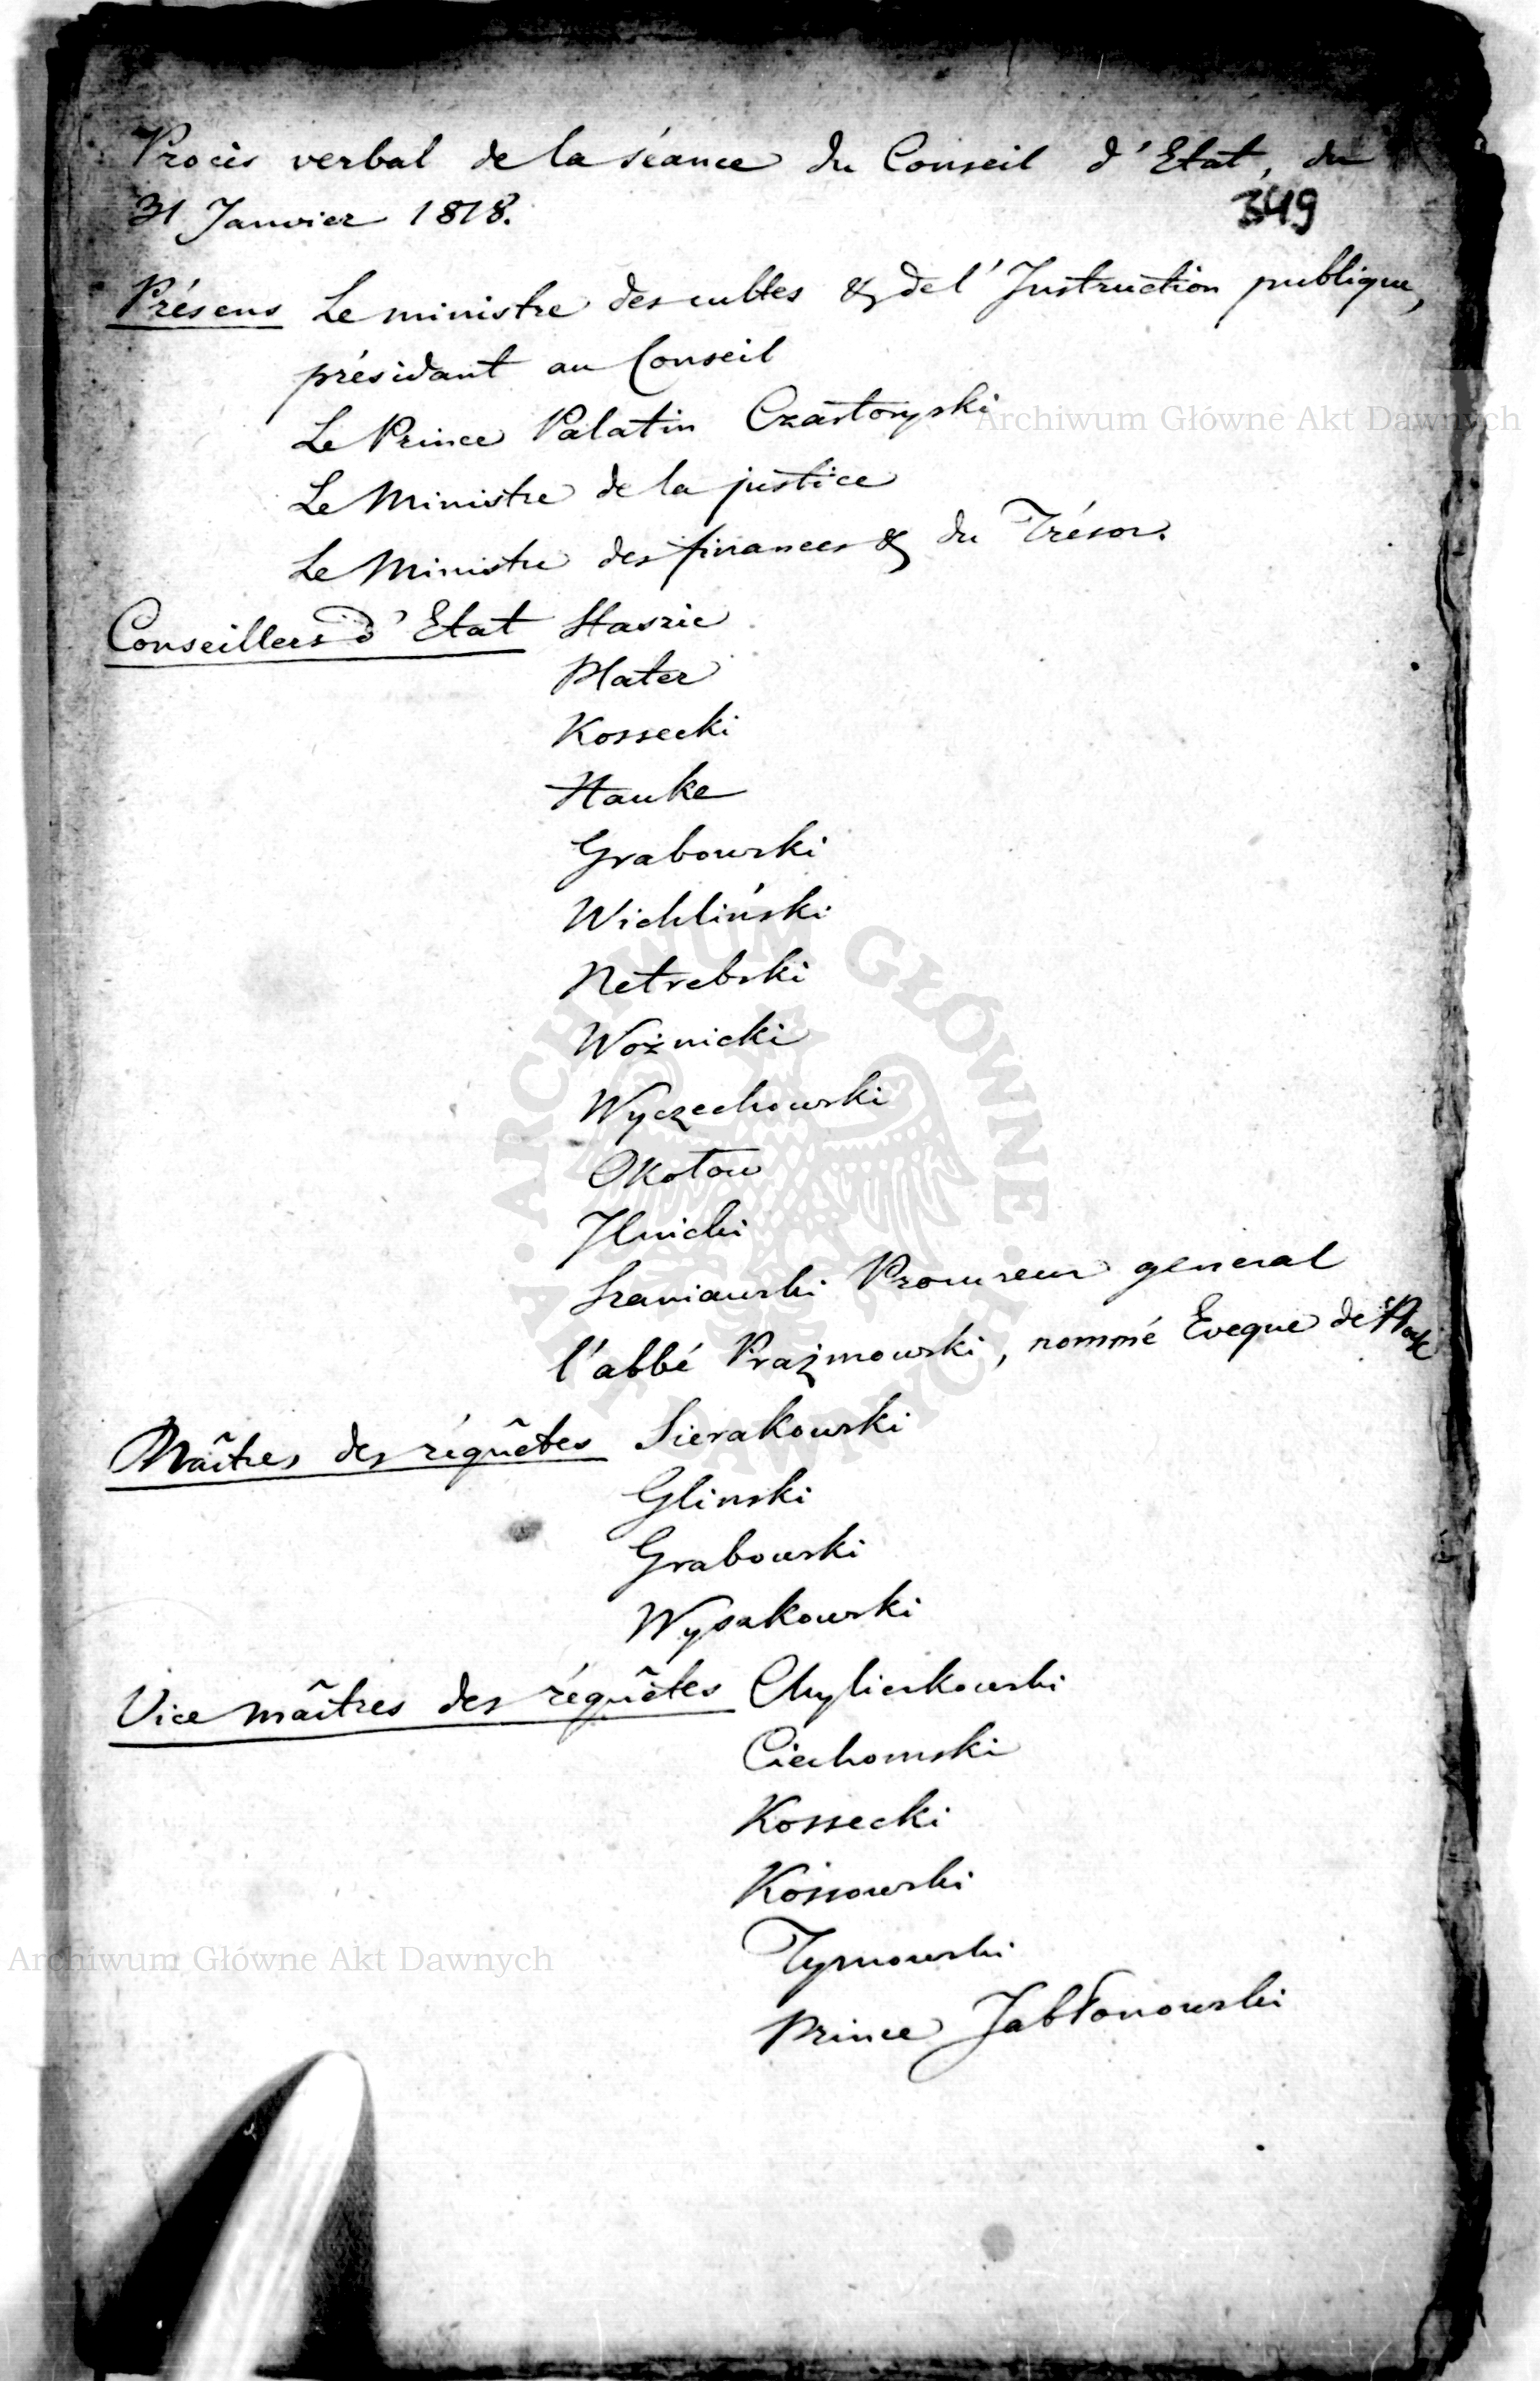 Procès verbal de la séance du Conseil d'Etat, du
349
31 Janvier 1818.
Présens Le ministre des cultes & de l'Instruction publique,
présidant au Conseil
Le Prince Palatin Czartoryski
Archiwum Główne Akt Dawnych
Le Ministre de la justice
Le Ministre des finances & du Trésor.
Conseillers d'Etat Staszic
Plater
Kossecki
Hauke
Grabowski
Wichliński
Netrebski
Woźnicki
Wyczechowski
Okołow
Ilnicki
Szaniawski Procureur general
l'abbé Prażmowski, nommé Eveque de Płock
Maîtres des réquêtes Sierakowski
Glinski
Grabowski
Wysakowski
Vice maîtres des réquêtes Chyliczkowski
Ciechomski
Kossecki
Kossowski
Tymowski
Archiwum Główne Akt Dawnych
Prince Jabłonowski
ARCHIWUM GŁÓWNE AKT DAWNYCH